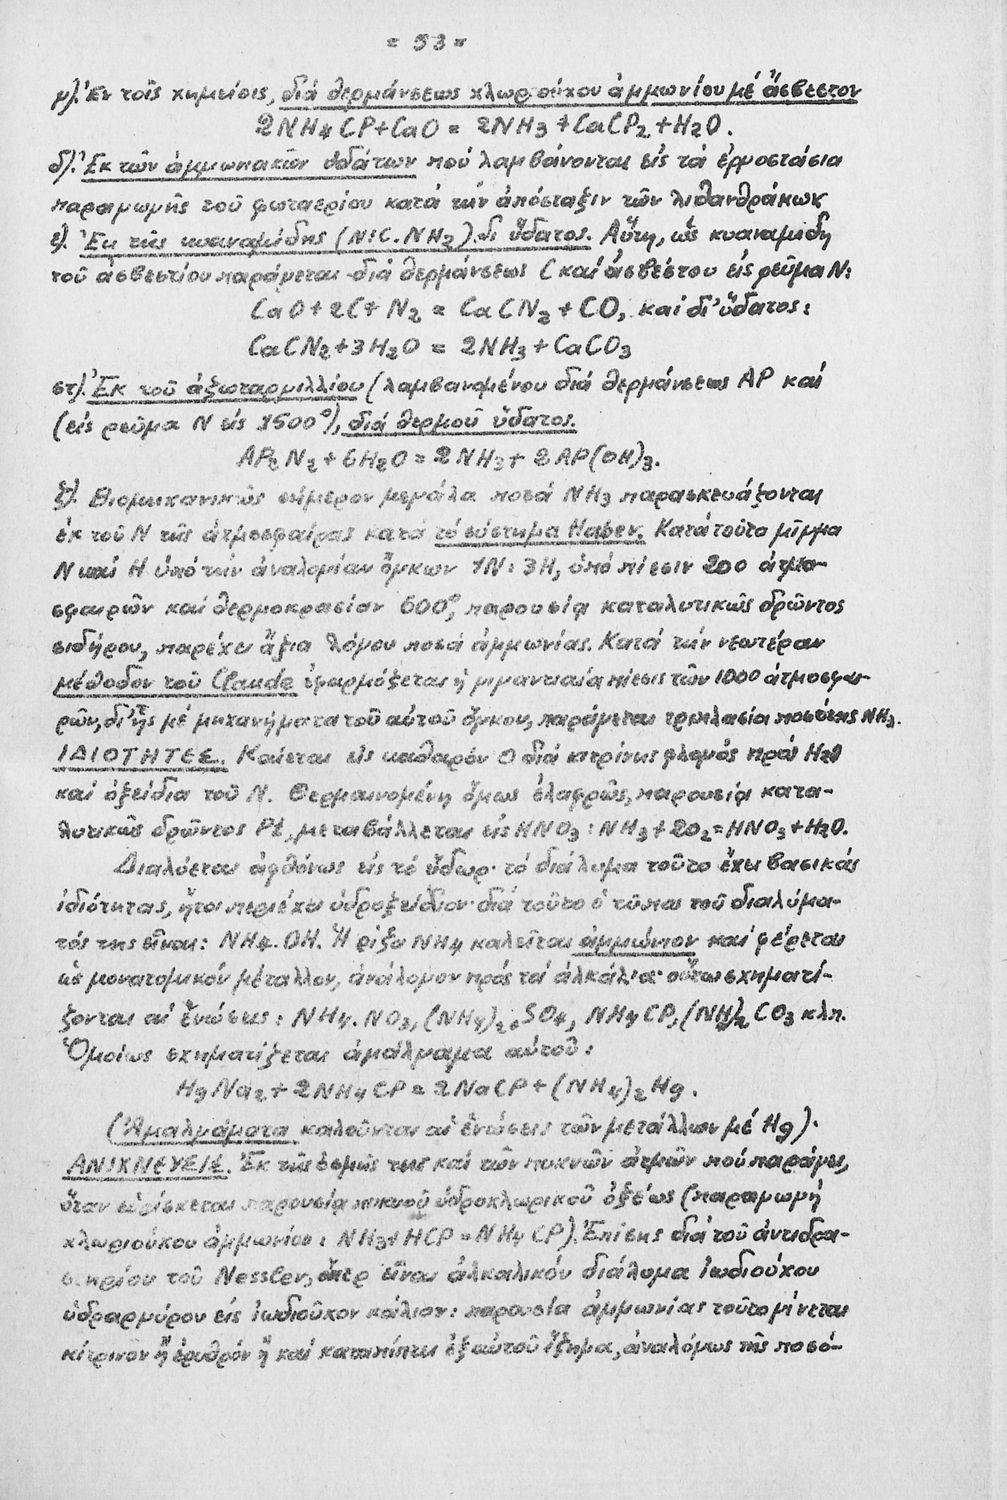 = 53 =
γ).Ἐν τοῖς χημείοις, διά θερμάνσεως χλωριούχου ἀμμωνίου μέ ἄσβεστον
2NH₄Cl+CaO = 2NH₃+CaCl₂+H₂O.
δ).Ἐκ τῶν ἀμμωνιακῶν ὑδάτων πού λαμβάνονται εἰς τά ἐργοστάσια
παραγωγῆς τοῦ φωταερίου κατά τήν ἀπόσταξιν τῶν λιθανθράκων
ε). Ἐκ τῆς κυαναμίδης (N:C.NH₂).δι ὕδατος. Αὕτη, ὡς κυαναμίδη
τοῦ ἀσβεστίου παράγεται διά θερμάνσεως C καί ἀσβέστου εἰς ρεῦμα N:
CaO+2C+N₂ = CaCN₂+CO, καί δι' ὕδατος:
CaCN₂+3H₂O = 2NH₃+CaCO₃
στ).Ἐκ τοῦ ἀζωταργιλλίου (λαμβανομένου διά θερμάνσεως Al καί
(εἰς ρεῦμα N εἰς 1500°), διά θερμοῦ ὕδατος.
Al₂N₂+6H₂O = 2NH₃+2Al(OH)₃.
ζ). Βιομηχανικῶς σήμερον μεγάλα ποσά NH₃ παρασκευάζονται
ἐκ τοῦ N τῆς ἀτμοσφαίρας κατά τό σύστημα Haber. Κατά τοῦτο μῖγμα
N καί H ὑπό τήν ἀναλογίαν ὄγκων 1N:3H, ὑπό πίεσιν 200 ἀτμο-
σφαιρῶν καί θερμοκρασίαν 600°, παρουσίᾳ καταλυτικῶς δρῶντος
σιδήρου, παρέχει ἄξια λόγου ποσά ἀμμωνίας. Κατά τήν νεωτέραν
μέθοδον τοῦ Claude ἐφαρμόζεται ἡ γιγαντιαία πίεσις τῶν 1000 ἀτμοσφαι-
ρῶν, δι' ἧς μέ μηχανήματα τοῦ αὐτοῦ ὄγκου, παράγεται τριπλασία ποσότης NH₃.
ΙΔΙΟΤΗΤΕΣ. Καίεται εἰς καθαρόν O διά κιτρίνης φλογός πρός H₂O
καί ὀξείδια τοῦ N. Θερμαινομένη ὅμως ἐλαφρῶς, παρουσίᾳ κατα-
λυτικῶς δρῶντος Pt, μεταβάλλεται εἰς HNO₃: NH₃+2O₂=HNO₃+H₂O.
Διαλύεται ἀφθόνως εἰς τό ὕδωρ· τό διάλυμα τοῦτο ἔχει βασικάς
ἰδιότητας, ἤτοι περιέχει ὑδροξείδιον· διά τοῦτο ὁ τύπος τοῦ διαλύμα-
τός της εἶναι: NH₄.OH. Ἡ ρίζα NH₄ καλεῖται ἀμμώνιον καί φέρεται
ὡς μονατομικόν μέταλλον, ἀνάλογον πρός τά ἀλκάλια· οὕτω σχηματί-
ζονται αἱ ἑνώσεις: NH₄.NO₃, (NH₄)₂.SO₄, NH₄Cl, (NH₄)₂CO₃ κλπ.
Ὁμοίως σχηματίζεται ἀμάλγαμα αὐτοῦ:
HgNa₂+2NH₄Cl = 2NaCl+(NH₄)₂Hg.
(Ἀμαλγάματα καλοῦνται αἱ ἑνώσεις τῶν μετάλλων μέ Hg).
ΑΝΙΧΝΕΥΣΙΣ. Ἐκ τῆς ὀσμῆς της καί τῶν πυκνῶν ἀτμῶν πού παράγει,
ὅταν εὑρίσκεται παρουσίᾳ πυκνοῦ ὑδροχλωρικοῦ ὀξέως (παραγωγή
χλωριούχου ἀμμωνίου: NH₃+HCl=NH₄Cl). Ἐπίσης διά τοῦ ἀντιδρα-
στηρίου τοῦ Nessler, ὅπερ εἶναι ἀλκαλικόν διάλυμα ἰωδιούχου
ὑδραργύρου εἰς ἰωδιοῦχον κάλιον: παρουσίᾳ ἀμμωνίας τοῦτο γίνεται
κίτρινον ἤ ἐρυθρόν ἤ καί καταπίπτει ἐξ αὐτοῦ ἵζημα, ἀναλόγως τῆς ποσό-